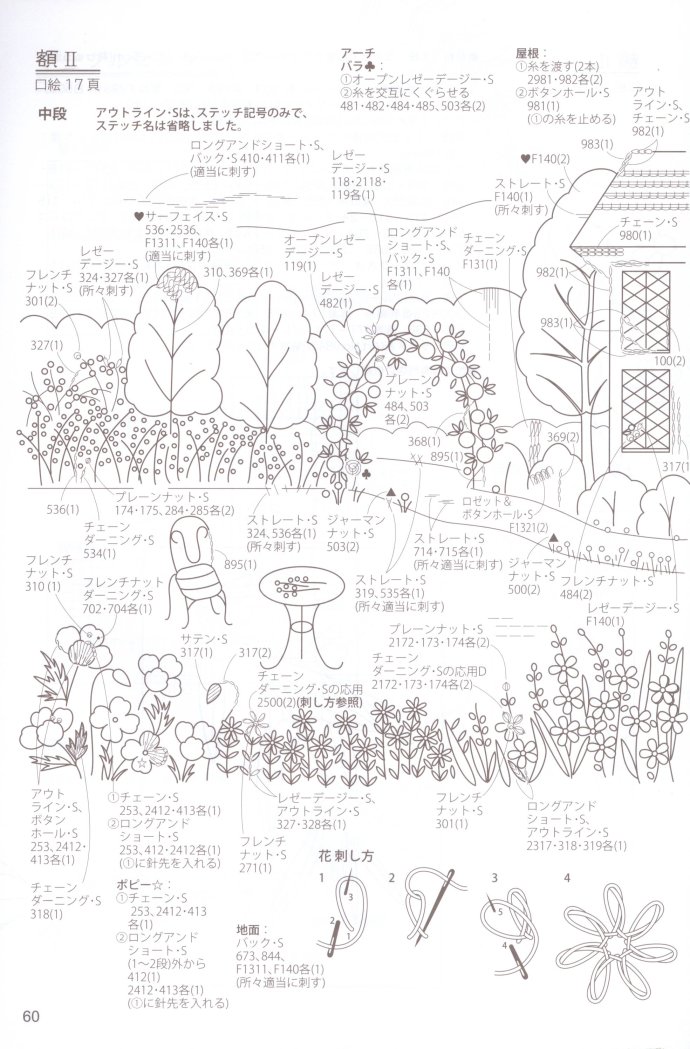 額 Ⅱ
口絵 17 頁
中段
アウトライン・Sは、ステッチ記号のみで、
ステッチ名は省略しました。
アーチ
バラ♣：
①オープンレゼーデージー・S
②糸を交互にくぐらせる
481・482・484・485、503各(2)
屋根：
①糸を渡す(2本)
2981・982各(2)
②ボタンホール・S
981(1)
(①の糸を止める)
アウト
ライン・S、
チェーン・S
982(1)
983(1)
ロングアンドショート・S、
バック・S 410・411各(1)
(適当に刺す)
レゼー
デージー・S
118・2118・
119各(1)
♥F140(2)
ストレート・S
F140(1)
(所々刺す)
チェーン・S
980(1)
♥サーフェイス・S
536・2536、
F1311、F140各(1)
(適当に刺す)
オープンレゼー
デージー・S
119(1)
ロングアンド
ショート・S、
バック・S
F1311、F140
各(1)
チェーン
ダーニング・S
F131(1)
レゼー
デージー・S
324・327各(1)
(所々刺す)
310、369各(1)
レゼー
デージー・S
482(1)
フレンチ
ナット・S
301(2)
982(1)
983(1)
327(1)
100(2)
プレーン
ナット・S
484、503
各(2)
368(1)
895(1)
369(2)
317(1)
536(1)
プレーンナット・S
174・175、284・285各(2)
チェーン
ダーニング・S
534(1)
ストレート・S
324、536各(1)
(所々刺す)
♣
ジャーマン
ナット・S
503(2)
▲
ストレート・S
714・715各(1)
(所々適当に刺す)
ロゼット＆
ボタンホール・S
F1321(2)
▲
ジャーマン
ナット・S
500(2)
フレンチナット・S
484(2)
レゼーデージー・S
F140(1)
フレンチ
ナット・S
310 (1)
フレンチナット
ダーニング・S
702・704各(1)
895(1)
ストレート・S
319、535各(1)
(所々適当に刺す)
サテン・S
317(1)
317(2)
プレーンナット・S
2172・173・174各(2)
チェーン
ダーニング・Sの応用D
2172・173・174各(2)
チェーン
ダーニング・Sの応用
2500(2)(刺し方参照)
アウト
ライン・S、
ボタン
ホール・S
253、2412・
413各(1)
チェーン
ダーニング・S
318(1)
①チェーン・S
253、2412・413各(1)
②ロングアンド
ショート・S
253、412・2412各(1)
(①に針先を入れる)
ポピー☆：
①チェーン・S
253、2412・413
各(1)
②ロングアンド
ショート・S
(1〜2段)外から
412(1)
2412・413各(1)
(①に針先を入れる)
レゼーデージー・S、
アウトライン・S
327・328各(1)
フレンチ
ナット・S
271(1)
フレンチ
ナット・S
301(1)
ロングアンド
ショート・S、
アウトライン・S
2317・318・319各(1)
地面：
バック・S
673、844、
F1311、F140各(1)
(所々適当に刺す)
花 刺し方
1
3
2
1
2
3
5
4
4
60